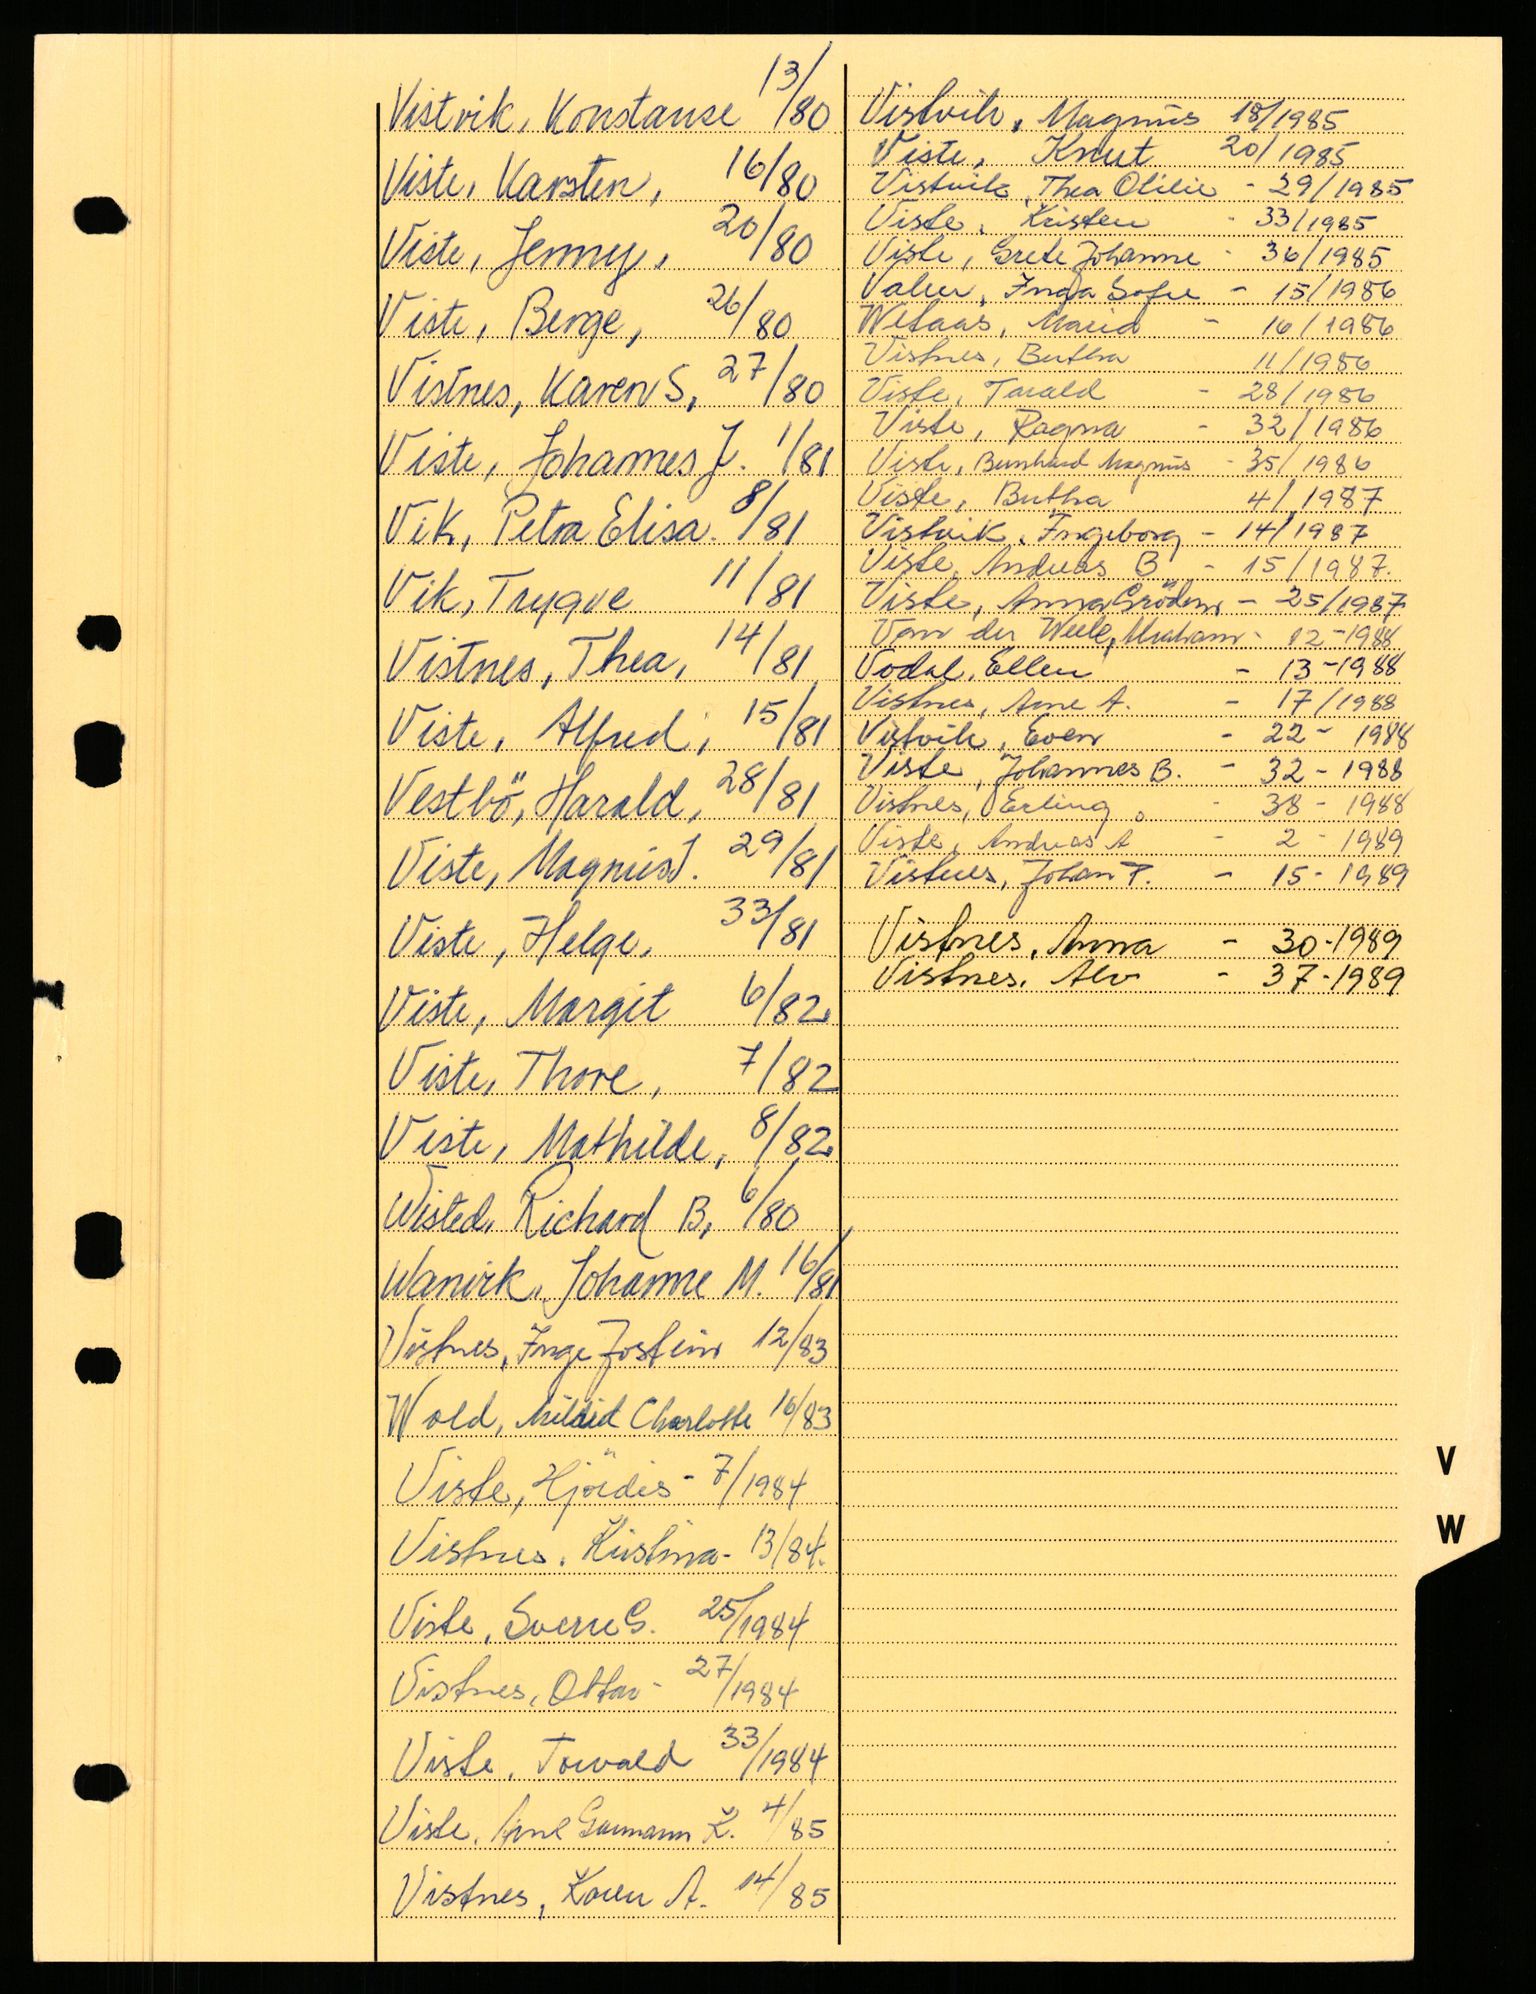 Vistvik, Konstanse 13/80
Viste, Karsten, 16/80
Viste, Jenny, 20/80
Viste, Berge, 26/80
Vistnes, Karen S, 27/80
Viste, Johannes J. 1/81
Vik, Petra Elisa. 8/81
Vik, Trygve 11/81
Vistnes, Thea, 14/81
Viste, Alfred, 15/81
Vestbö, Harald, 28/81
Viste, Magnus J. 29/81
Viste, Helge, 33/81
Viste, Margit 6/82
Viste, Thore, 7/82
Viste, Mathilde, 8/82
Wisted, Richard B, 6/80
Wanvik, Johanne M. 16/81
Vistnes, Inge Jostein 12/83
Wold, Charlotte 16/83
Viste, Hjördis - 7/1984
Vistnes, Kristina - 13/84.
Viste, Sverre G. 25/1984
Vistnes, Ottar - 27/1984
Viste, Torvald 33/1984
Viste, Arne Garmann K. 4/85
Vistnes, Karen A. 14/85
Vistvik, Magnus 18/1985
Viste, Knut 20/1985
Vistvik, Thea Otilie - 29/1985
Viste, Kristen - 33/1985
Viste, Grete Johanne - 36/1985
Inga Sofie - 15/1986
Wetaas, Maria - 16/1986
Vistnes, Bertha 11/1986
Viste, Torald - 28/1986
Viste, Ragna - 32/1986
Viste, Bernhard Magnus - 35/1986
Viste, Bertha 4/1987
Vistvik, Ingeborg - 14/1987
Viste, Andreas B - 15/1987.
Viste, Anna Grödem - 25/1987
Van der Weele, Abraham - 12-1988
Vodal, Ellen - 13-1988
Vistnes, Arne A. - 17/1988
Vistvik, Even - 22 - 1988
Viste, Johannes B. - 32 - 1988
Vistnes, Erling - 38 - 1988
Viste, Andreas A - 2 - 1989
Vistnes, Johan T. - 15 - 1989
Vistnes, Anna - 30-1989
Vistnes, Alv - 37-1989
V
W